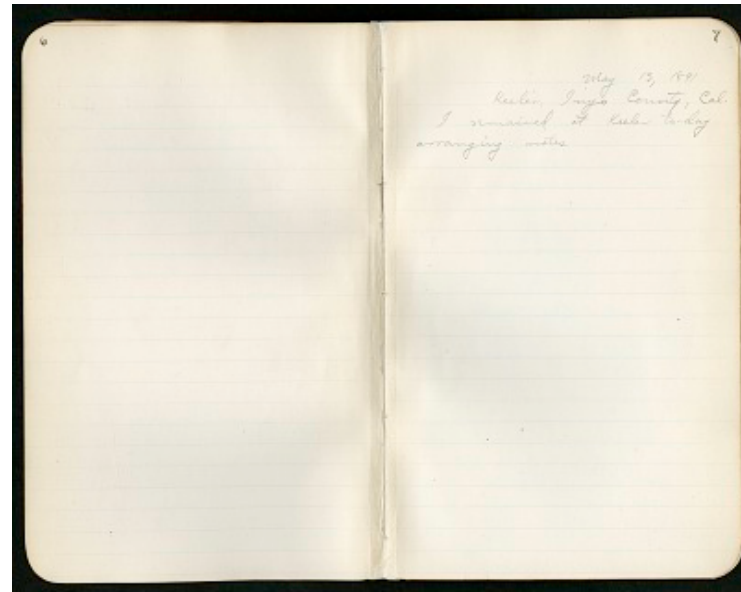 6
7
May 13, 1891
Keeler, Inyo County, Cal.
I remained at Keeler to-day
arranging notes